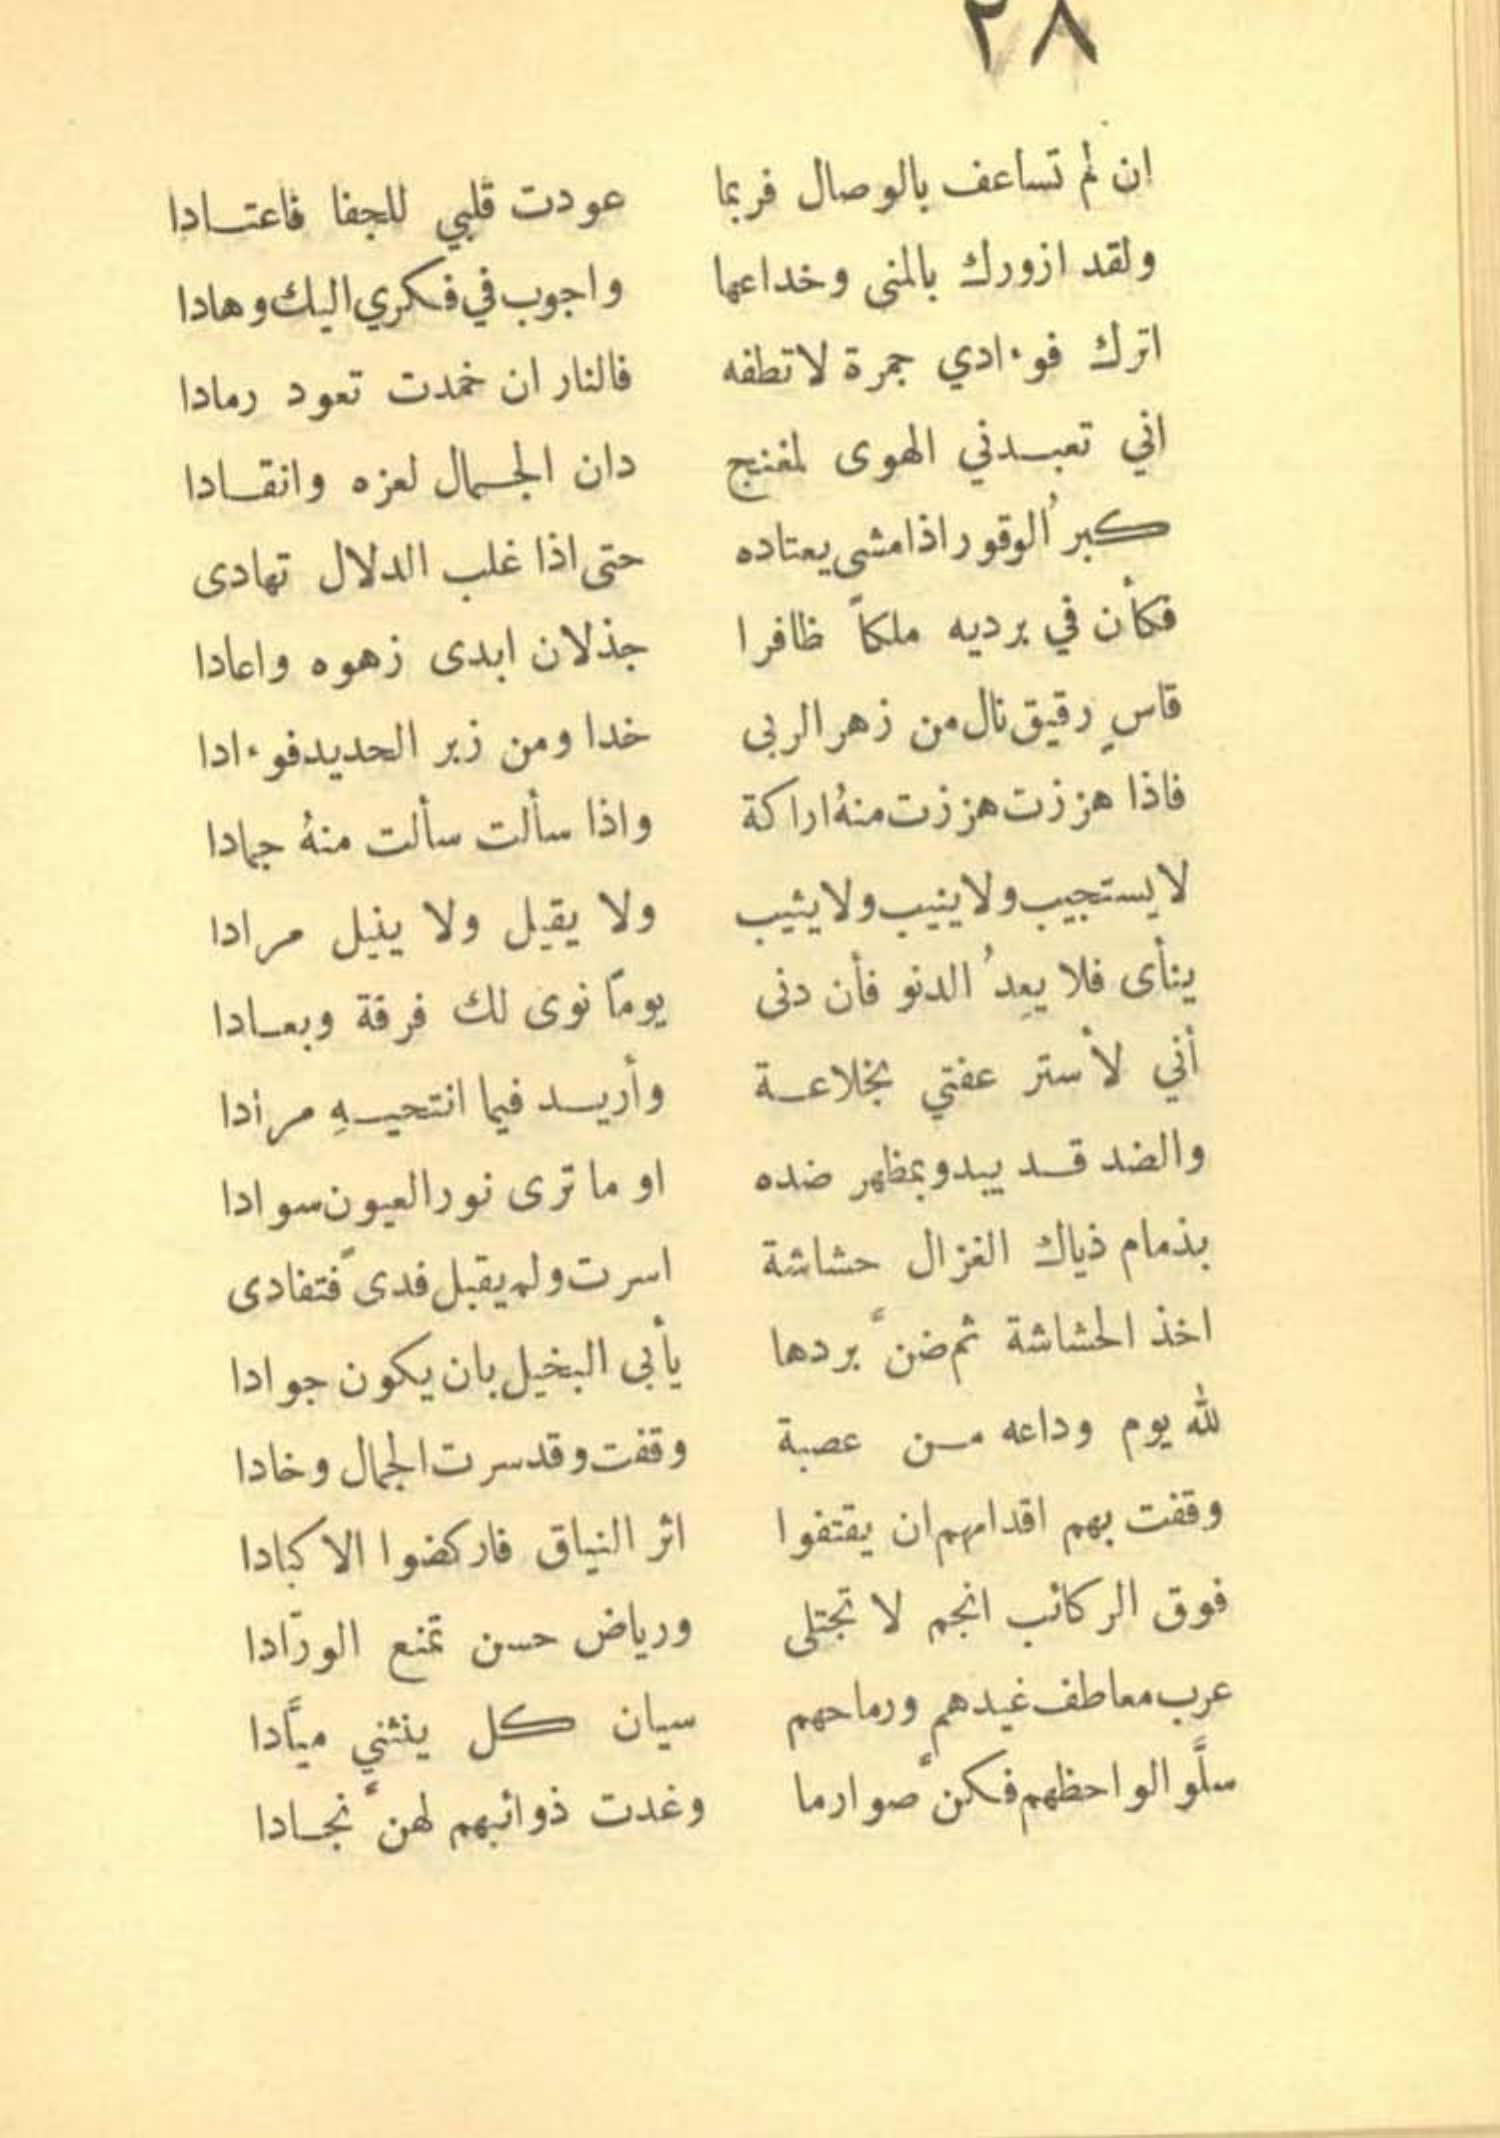 ٢٨
ان لم تساعف بالوصال فربما عودت قلبي للجفا فاعتادا
ولقد ازورك بالمنى وخداعها واجوب في فكري اليك وهادا
اترك فوءادي جمرة لا تطفه فالنار ان خمدت تعود رمادا
اني تعبدني الهوى لمغنج دان الجمال لعزه وانقادا
كبرُ الوقور اذا مشى يعتاده حتى اذا غلب الدلال تهادى
فكأن في برديه ملكاً ظافرا جذلان ابدى زهوه واعادا
قاسٍ رقيق نال من زهر الربى خدا ومن زبر الحديد فوءادا
فاذا هززت هززت منهُ اراكة واذا سألت سألت منهُ جمادا
لا يستجيب ولا ينيب ولا يثيب ولا يقيل ولا ينيل مرادا
ينأى فلا يعِدُ الدنو فأن دنى يوماً نوى لك فرقة وبعادا
أني لأستر عفتي بخلاعة وأريد فيما انتحيهِ مرادا
والضد قد يبدو بمظهر ضده او ما ترى نور العيون سوادا
بذمام ذياك الغزال حشاشة اسرت ولم يقبل فدىً فتفادى
اخذ الحشاشة ثم ضنَّ بردها يأبى البخيل بان يكون جوادا
لله يوم وداعه من عصبة وقفت وقد سرت الجمال وخادا
وقفت بهم اقدامهم ان يقتفوا اثر النياق فاركضوا الاكبادا
فوق الركائب انجم لا تجتلى ورياض حسن تمنع الورّادا
عرب معاطف غيدهم ورماحهم سيان كل ينثني ميَّادا
سلَّوا لواحظهم فكنَّ صوارما وغدت ذوائبهم لهنَّ نجادا